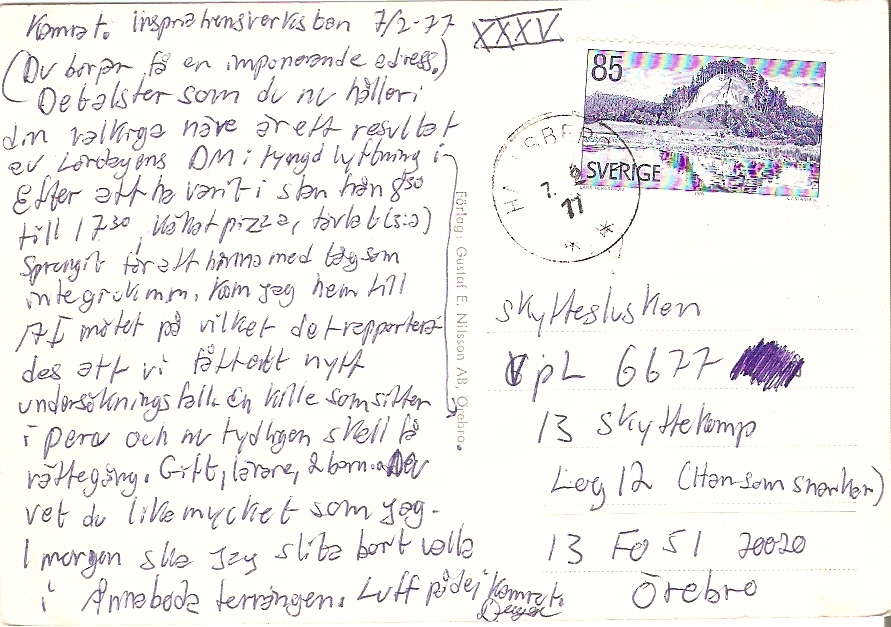 Kamrat. inspirationsverksban 7/2-77
(Du börjar få en imponerande adress.)
Det alster som du nu håller i
din valkiga näve är ett resultat
av Lördagens DM i tyngdlyftning i
Efter att ha varit i stan från 8 30
till 17 30, käkat pizza, tävlat (s:a)
Sprungit för att hinna med tåg som
inte gick mm. Kom jag hem till
AI mötet på vilket det rapportera
des att vi fått ett nytt
undersökningsfall. En kille som sitter
i peru och nu tydligen skall få
rättegång. Gift, lärare, 2 barn. Nu
vet du lika mycket som jag.
I morgon ska jag slita bort valla
i Ånnaboda terrängen. Luff på dej Kamrat.
XXXV
85
SVERIGE
HALLSBERG
7. 2
77
Förlag: Gustaf E. Nilsson AB, Örebro.
Skytteslusken
Vpl 6677
13 Skyttekomp
Log 12 (Han som snarker)
13 FO 51 70020
Örebro